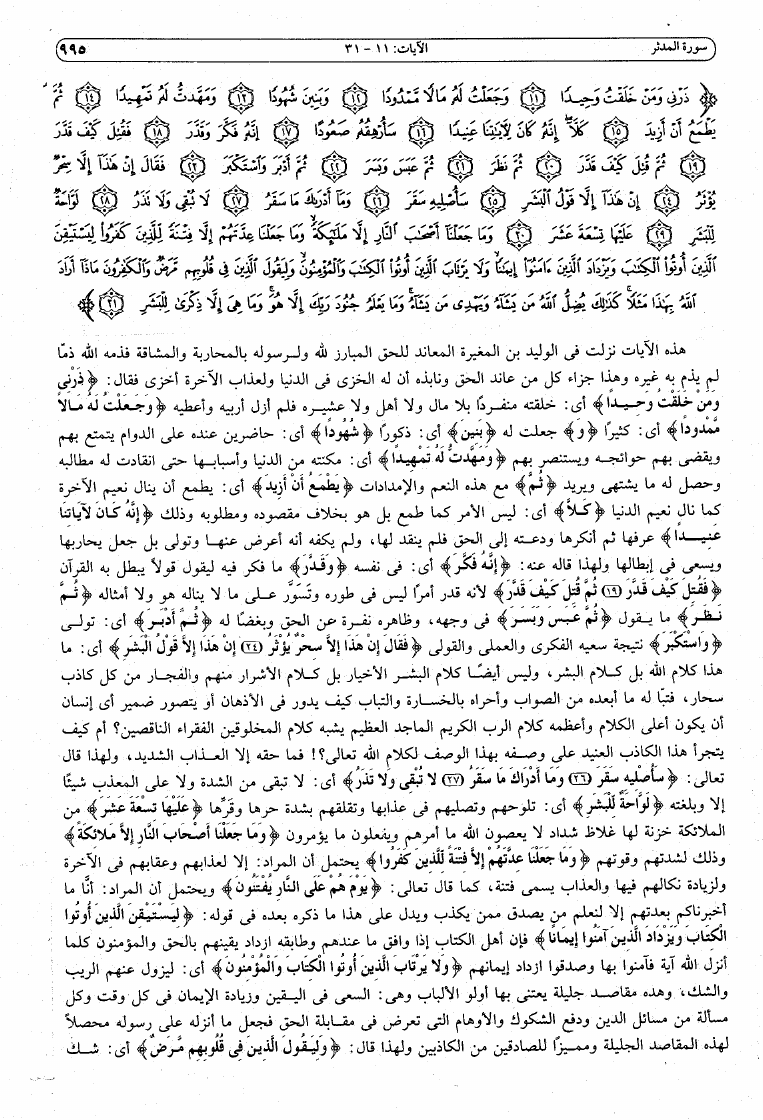 سورة المدثر الآيات: ١١ - ٣١ ٩٩٥
﴿ ذَرْنِي وَمَنْ خَلَقْتُ وَحِيدًا ١١ وَجَعَلْتُ لَهُ مَالًا مَّمْدُودًا ١٢ وَبَنِينَ شُهُودًا ١٣ وَمَهَّدتُّ لَهُ تَمْهِيدًا ١٤ ثُمَّ
يَطْمَعُ أَنْ أَزِيدَ ١٥ كَلَّا إِنَّهُ كَانَ لِآيَاتِنَا عَنِيدًا ١٦ سَأُرْهِقُهُ صَعُودًا ١٧ إِنَّهُ فَكَّرَ وَقَدَّرَ ١٨ فَقُتِلَ كَيْفَ قَدَّرَ
١٩ ثُمَّ قُتِلَ كَيْفَ قَدَّرَ ٢٠ ثُمَّ نَظَرَ ٢١ ثُمَّ عَبَسَ وَبَسَرَ ٢٢ ثُمَّ أَدْبَرَ وَاسْتَكْبَرَ ٢٣ فَقَالَ إِنْ هَٰذَا إِلَّا سِحْرٌ
يُؤْثَرُ ٢٤ إِنْ هَٰذَا إِلَّا قَوْلُ الْبَشَرِ ٢٥ سَأُصْلِيهِ سَقَرَ ٢٦ وَمَا أَدْرَاكَ مَا سَقَرُ ٢٧ لَا تُبْقِي وَلَا تَذَرُ ٢٨ لَوَّاحَةٌ
لِّلْبَشَرِ ٢٩ عَلَيْهَا تِسْعَةَ عَشَرَ ٣٠ وَمَا جَعَلْنَا أَصْحَابَ النَّارِ إِلَّا مَلَائِكَةً وَمَا جَعَلْنَا عِدَّتَهُمْ إِلَّا فِتْنَةً لِّلَّذِينَ كَفَرُوا لِيَسْتَيْقِنَ
الَّذِينَ أُوتُوا الْكِتَابَ وَيَزْدَادَ الَّذِينَ آمَنُوا إِيمَانًا وَلَا يَرْتَابَ الَّذِينَ أُوتُوا الْكِتَابَ وَالْمُؤْمِنُونَ وَلِيَقُولَ الَّذِينَ فِي قُلُوبِهِم مَّرَضٌ وَالْكَافِرُونَ مَاذَا أَرَادَ
اللَّهُ بِهَٰذَا مَثَلًا كَذَٰلِكَ يُضِلُّ اللَّهُ مَن يَشَاءُ وَيَهْدِي مَن يَشَاءُ وَمَا يَعْلَمُ جُنُودَ رَبِّكَ إِلَّا هُوَ وَمَا هِيَ إِلَّا ذِكْرَىٰ لِلْبَشَرِ ٣١ ﴾
هذه الآيات نزلت فى الوليد بن المغيرة المعاند للحق المبارز لله ولرسوله بالمحاربة والمشاقة فذمه الله ذمًا
لم يذم به غيره وهذا جزاء كل من عاند الحق ونابذه أن له الخزى فى الدنيا ولعذاب الآخرة أخزى فقال: ﴿ذَرْنِي
وَمَنْ خَلَقْتُ وَحِيدًا﴾ أى: خلقته منفردًا بلا مال ولا أهل ولا عشيره فلم أزل أربيه وأعطيه ﴿وَجَعَلْتُ لَهُ مَالاً
مَّمْدُوداً﴾ أى: كثيرًا ﴿وَ﴾ جعلت له ﴿بَنِينَ﴾ أى: ذكورًا ﴿شُهُوداً﴾ أى: حاضرين عنده على الدوام يتمتع بهم
ويقضى بهم حوائجه ويستنصر بهم ﴿وَمَهَّدتُّ لَهُ تَمْهِيداً﴾ أى: مكنته من الدنيا وأسبابها حتى انقادت له مطالبه
وحصل له ما يشتهى ويريد ﴿ثُمَّ﴾ مع هذه النعم والإمدادات ﴿يَطْمَعُ أَنْ أَزِيدَ﴾ أى: يطمع أن ينال نعيم الآخرة
كما نال نعيم الدنيا ﴿كَلاَّ﴾ أى: ليس الأمر كما طمع بل هو بخلاف مقصوده ومطلوبه وذلك ﴿إِنَّهُ كَانَ لآيَاتِنَا
عَنِيداً﴾ عرفها ثم أنكرها ودعته إلى الحق فلم ينقد لها، ولم يكفه أنه أعرض عنها وتولى بل جعل يحاربها
ويسعى فى إبطالها ولهذا قاله عنه: ﴿إِنَّهُ فَكَّرَ﴾ أى: فى نفسه ﴿وَقَدَّرَ﴾ ما فكر فيه ليقول قولاً يبطل به القرآن
﴿فَقُتِلَ كَيْفَ قَدَّرَ (١٩) ثُمَّ قُتِلَ كَيْفَ قَدَّرَ﴾ لأنه قدر أمرًا ليس فى طوره وتَسَوَّر على ما لا يناله هو ولا أمثاله ﴿ثُمَّ
نَظَرَ﴾ ما يقول ﴿ثُمَّ عَبَسَ وَبَسَرَ﴾ فى وجهه، وظاهره نفرة عن الحق وبغضا له ﴿ثُمَّ أَدْبَرَ﴾ أى: تولى
﴿وَاسْتَكْبَرَ﴾ نتيجة سعيه الفكرى والعملى والقولى ﴿فَقَالَ إِنْ هَذَا إِلاَّ سِحْرٌ يُؤْثَرُ (٢٤) إِنْ هَذَا إِلاَّ قَوْلُ الْبَشَرِ﴾ أى: ما
هذا كلام الله بل كلام البشر، وليس أيضًا كلام البشر الأخيار بل كلام الأشرار منهم والفجار من كل كاذب
سحار، فتبًا له ما أبعده من الصواب وأحراه بالخسارة والتباب كيف يدور فى الأذهان أو يتصور ضمير أى إنسان
أن يكون أعلى الكلام وأعظمه كلام الرب الكريم الماجد العظيم يشبه كلام المخلوقين الفقراء الناقصين؟ أم كيف
يتجرأ هذا الكاذب العنيد على وصفه بهذا الوصف لكلام الله تعالى؟! فما حقه إلا العذاب الشديد، ولهذا قال
تعالى: ﴿سَأُصْلِيهِ سَقَرَ (٢٦) وَمَا أَدْرَاكَ مَا سَقَرُ (٢٧) لا تُبْقِي وَلا تَذَرُ﴾ أى: لا تبقى من الشدة ولا على المعذب شيئًا
إلا وبلغته ﴿لَوَّاحَةٌ لِّلْبَشَرِ﴾ أى: تلوحهم وتصليهم فى عذابها وتقلقهم بشدة حرها وقرِّها ﴿عَلَيْهَا تِسْعَةَ عَشَرَ﴾ من
الملائكة خزنة لها غلاظ شداد لا يعصون الله ما أمرهم ويفعلون ما يؤمرون ﴿وَمَا جَعَلْنَا أَصْحَابَ النَّارِ إِلاَّ مَلائِكَةً﴾
وذلك لشدتهم وقوتهم ﴿وَمَا جَعَلْنَا عِدَّتَهُمْ إِلاَّ فِتْنَةً لِّلَّذِينَ كَفَرُوا﴾ يحتمل أن المراد: إلا لعذابهم وعقابهم فى الآخرة
ولزيادة نكالهم فيها والعذاب يسمى فتنة، كما قال تعالى: ﴿يَوْمَ هُمْ عَلَى النَّارِ يُفْتَنُونَ﴾ ويحتمل أن المراد: أنَّا ما
أخبرناكم بعدتهم إلا لنعلم من يصدق ممن يكذب ويدل على هذا ما ذكره بعده فى قوله: ﴿لِيَسْتَيْقِنَ الَّذِينَ أُوتُوا
الْكِتَابَ وَيَزْدَادَ الَّذِينَ آمَنُوا إِيمَانًا﴾ فإن أهل الكتاب إذا وافق ما عندهم وطابقه ازداد يقينهم بالحق والمؤمنون كلما
أنزل الله آية فآمنوا بها وصدقوا ازداد إيمانهم ﴿وَلا يَرْتَابَ الَّذِينَ أُوتُوا الْكِتَابَ وَالْمُؤْمِنُونَ﴾ أى: ليزول عنهم الريب
والشك، وهذه مقاصد جليلة يعتنى بها أولو الألباب وهى: السعى فى اليقين وزيادة الإيمان فى كل وقت وكل
مسألة من مسائل الدين ودفع الشكوك والأوهام التى تعرض فى مقابلة الحق فجعل ما أنزله على رسوله محصلاً
لهذه المقاصد الجليلة ومميزًا للصادقين من الكاذبين ولهذا قال: ﴿وَلِيَقُولَ الَّذِينَ فِي قُلُوبِهِم مَّرَضٌ﴾ أى: شك